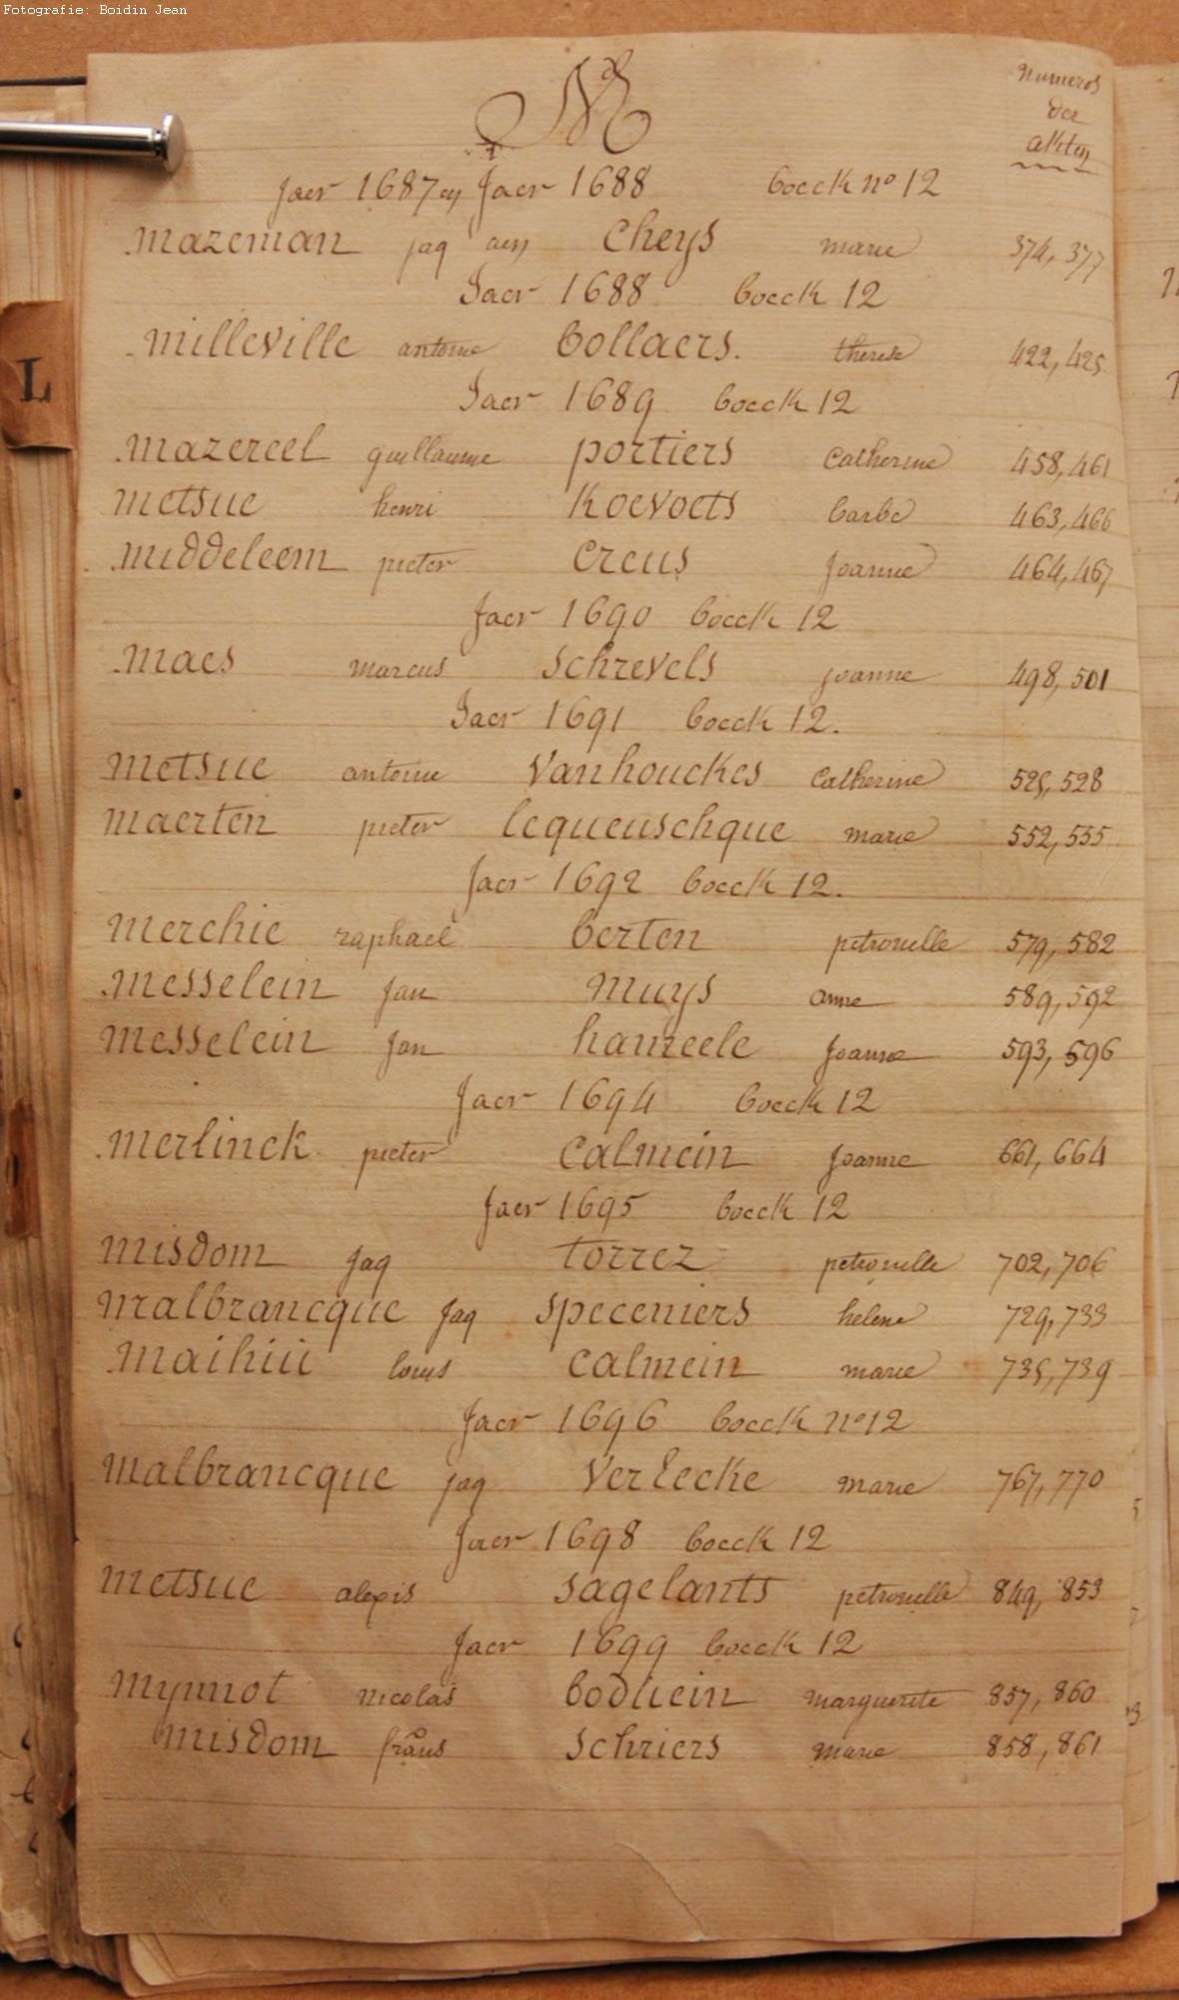 Fotografie: Boidin Jean
M
Numeros
der
akten
Jaer 1687 en Jaer 1688 boeck no 12
mazeman jaq cheys marie 374, 377
Jaer 1688 boeck 12
milleville antoine bollaers. therese 422, 425
Jaer 1689 boeck 12
L
mazereel guillaume portiers catherine 458, 461
metsue henri koevoets barbe 463, 466
middeleem pieter creus joanne 464, 467
Jaer 1690 boeck 12
maes marcus schrevels joanne 498, 501
Jaer 1691 boeck 12.
metsue antoine vanhouckes catherine 525, 528
maerten pieter lequeuschque marie 552, 555
Jaer 1692 boeck 12.
merchie raphael berten petronelle 579, 582
messelein jan muys anne 589, 592
messelein jan hameele joanne 593, 596
Jaer 1694 boeck 12
merlinck pieter calmein joanne 661, 664
Jaer 1695 boeck 12
misdom jaq torrez petronelle 702, 706
malbrancque jaq speceniers helene 729, 733
maihiu louis calmein marie 735, 739
Jaer 1696 boeck no 12
malbrancque jaq verlecke marie 767, 770
Jaer 1698 boeck 12
metsue alexis sagelants petronelle 849, 853
Jaer 1699 boeck 12
mynnot nicolas boduein marguerite 857, 860
misdom frans schriers marie 858, 861